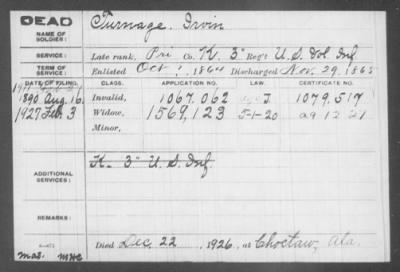 DEAD
NAME OF SOLDIER: Turnage, Irvin
SERVICE: Late rank, Pri Co. K, 3" Reg't U.S. Vol. Inf.
TERM OF SERVICE: Enlisted Oct 1864 Discharged Nov. 29, 1865
DATE OF FILING. CLASS. APPLICATION NO. LAW. CERTIFICATE NO.
1890 Aug. 16. Invalid, 1067,062 J 1079,517
1927 Feb. 3 Widow, 1567,123 5-1-20 a9 12 21
Minor,
ADDITIONAL SERVICES: K 3" U.S. Inf.
REMARKS:
Died Dec. 22, 1926, at Choctaw, Ala.
mas. MHC